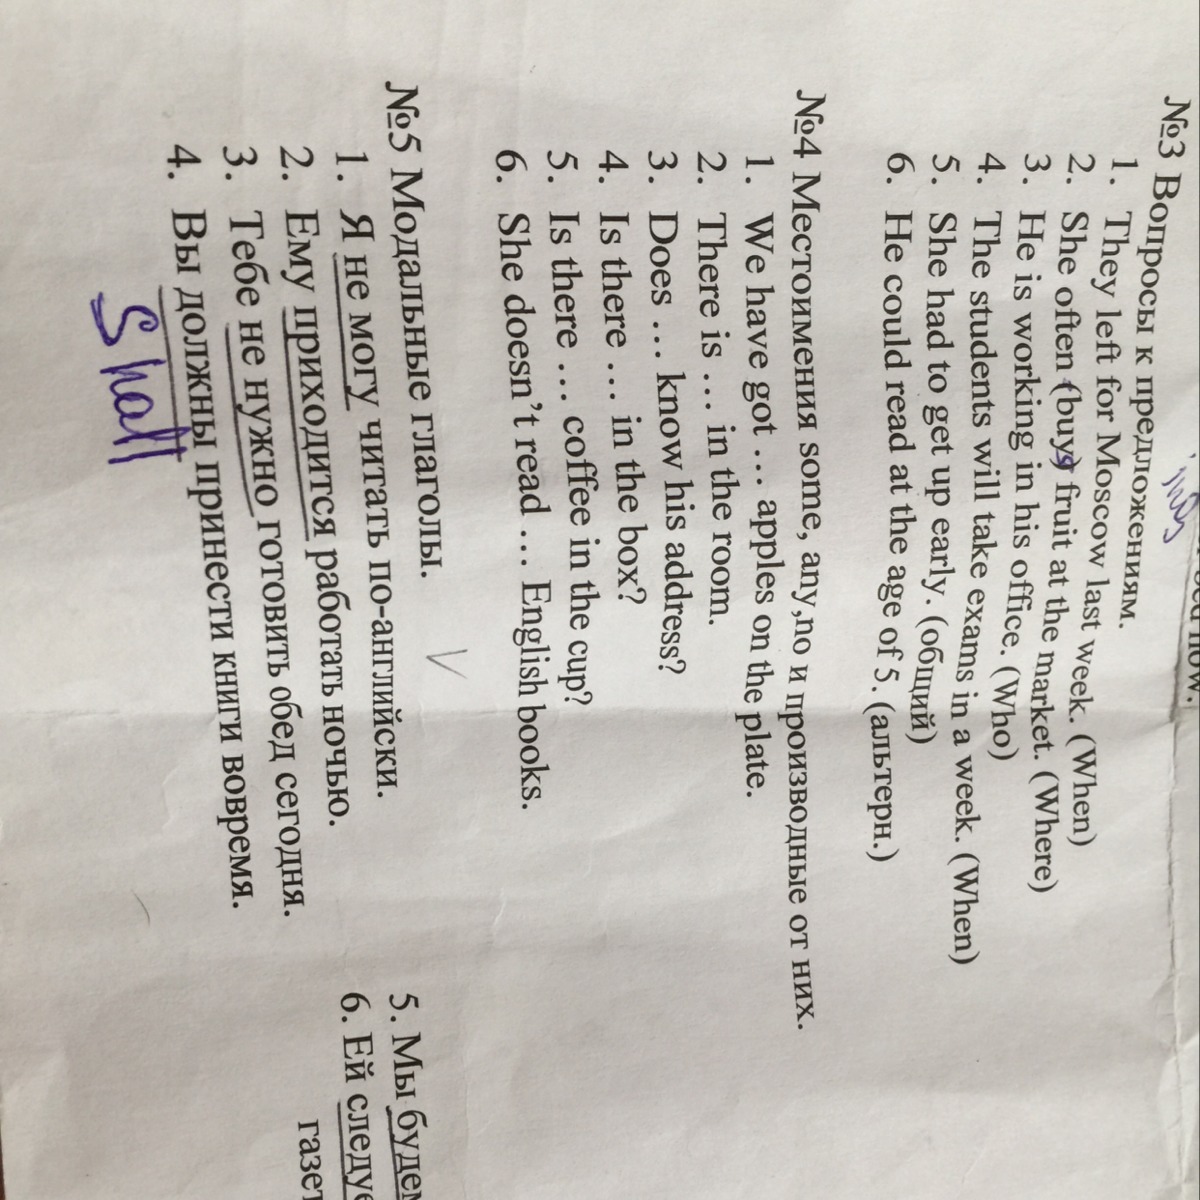 №3 Вопросы к предложениям.
1. They left for Moscow last week. (When)
2. She often (buys) fruit at the market. (Where)
3. He is working in his office. (Who)
4. The students will take exams in a week. (When)
5. She had to get up early. (общий)
6. He could read at the age of 5. (альтерн.)
№4 Местоимения some, any,no и производные от них.
1. We have got … apples on the plate.
2. There is … in the room.
3. Does … know his address?
4. Is there … in the box?
5. Is there … coffee in the cup?
6. She doesn't read … English books.
№5 Модальные глаголы.
1. Я не могу читать по-английски.
2. Ему приходится работать ночью.
3. Тебе не нужно готовить обед сегодня.
4. Вы должны принести книги вовремя.
shall
5. Мы будем
6. Ей следуе
газет